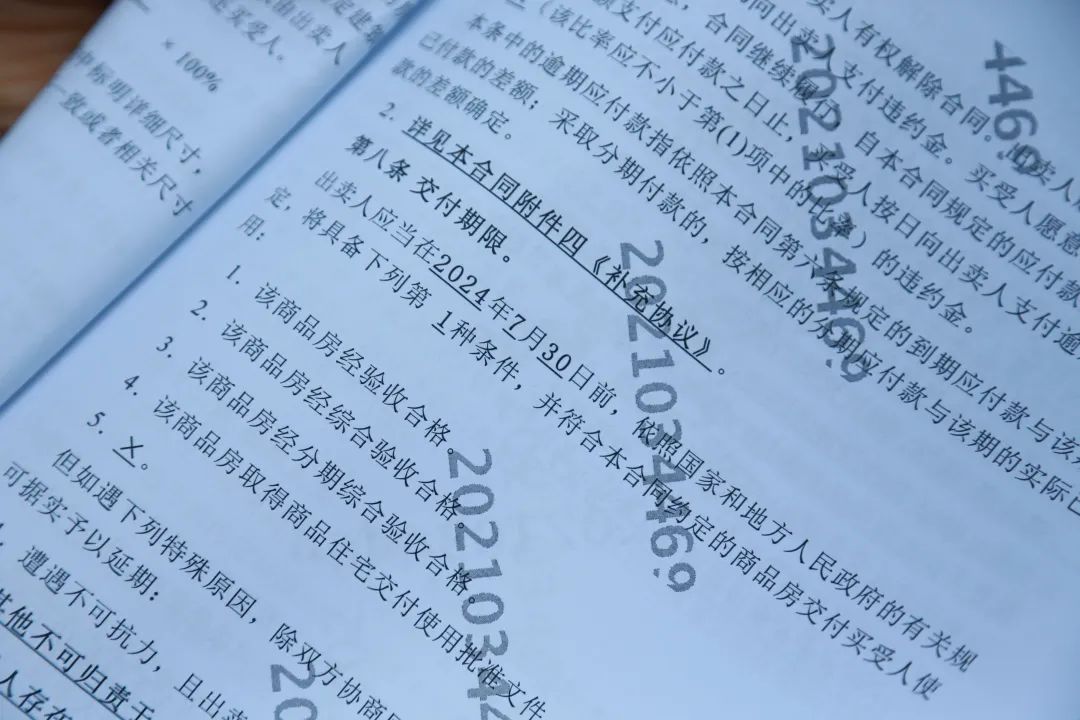 由出卖人
还买受人。
× 100%
中标明详细尺寸，
一致或者相关尺寸
卖人有权解除合同。出卖人
向出卖人支付违约金。买受人愿意
合同继续履行，自本合同规定的应付款
支付应付款之日止，买受人按日向出卖人支付逾
（该比率应不小于第(1)项中的比率）的违约金。
本条中的逾期应付款指依照本合同第六条规定的到期应付款与该
已付款的差额；采取分期付款的，按相应的分期应付款与该期的实际已
款的差额确定。
2. 详见本合同附件四《补充协议》。
第八条 交付期限。
出卖人应当在2024年7月30日前，依照国家和地方人民政府的有关规
定，将具备下列第 1种条件，并符合本合同约定的商品房交付买受人使
用：
1. 该商品房经验收合格。
2. 该商品房经综合验收合格。
3. 该商品房经分期综合验收合格。
4. 该商品房取得商品住宅交付使用批准文件
5. ㄨ。
但如遇下列特殊原因，除双方协商
可据实予以延期：
遭遇不可抗力，且出卖
其他不可归责于
人存在
4469
2021034469
2021034469
20210344
20